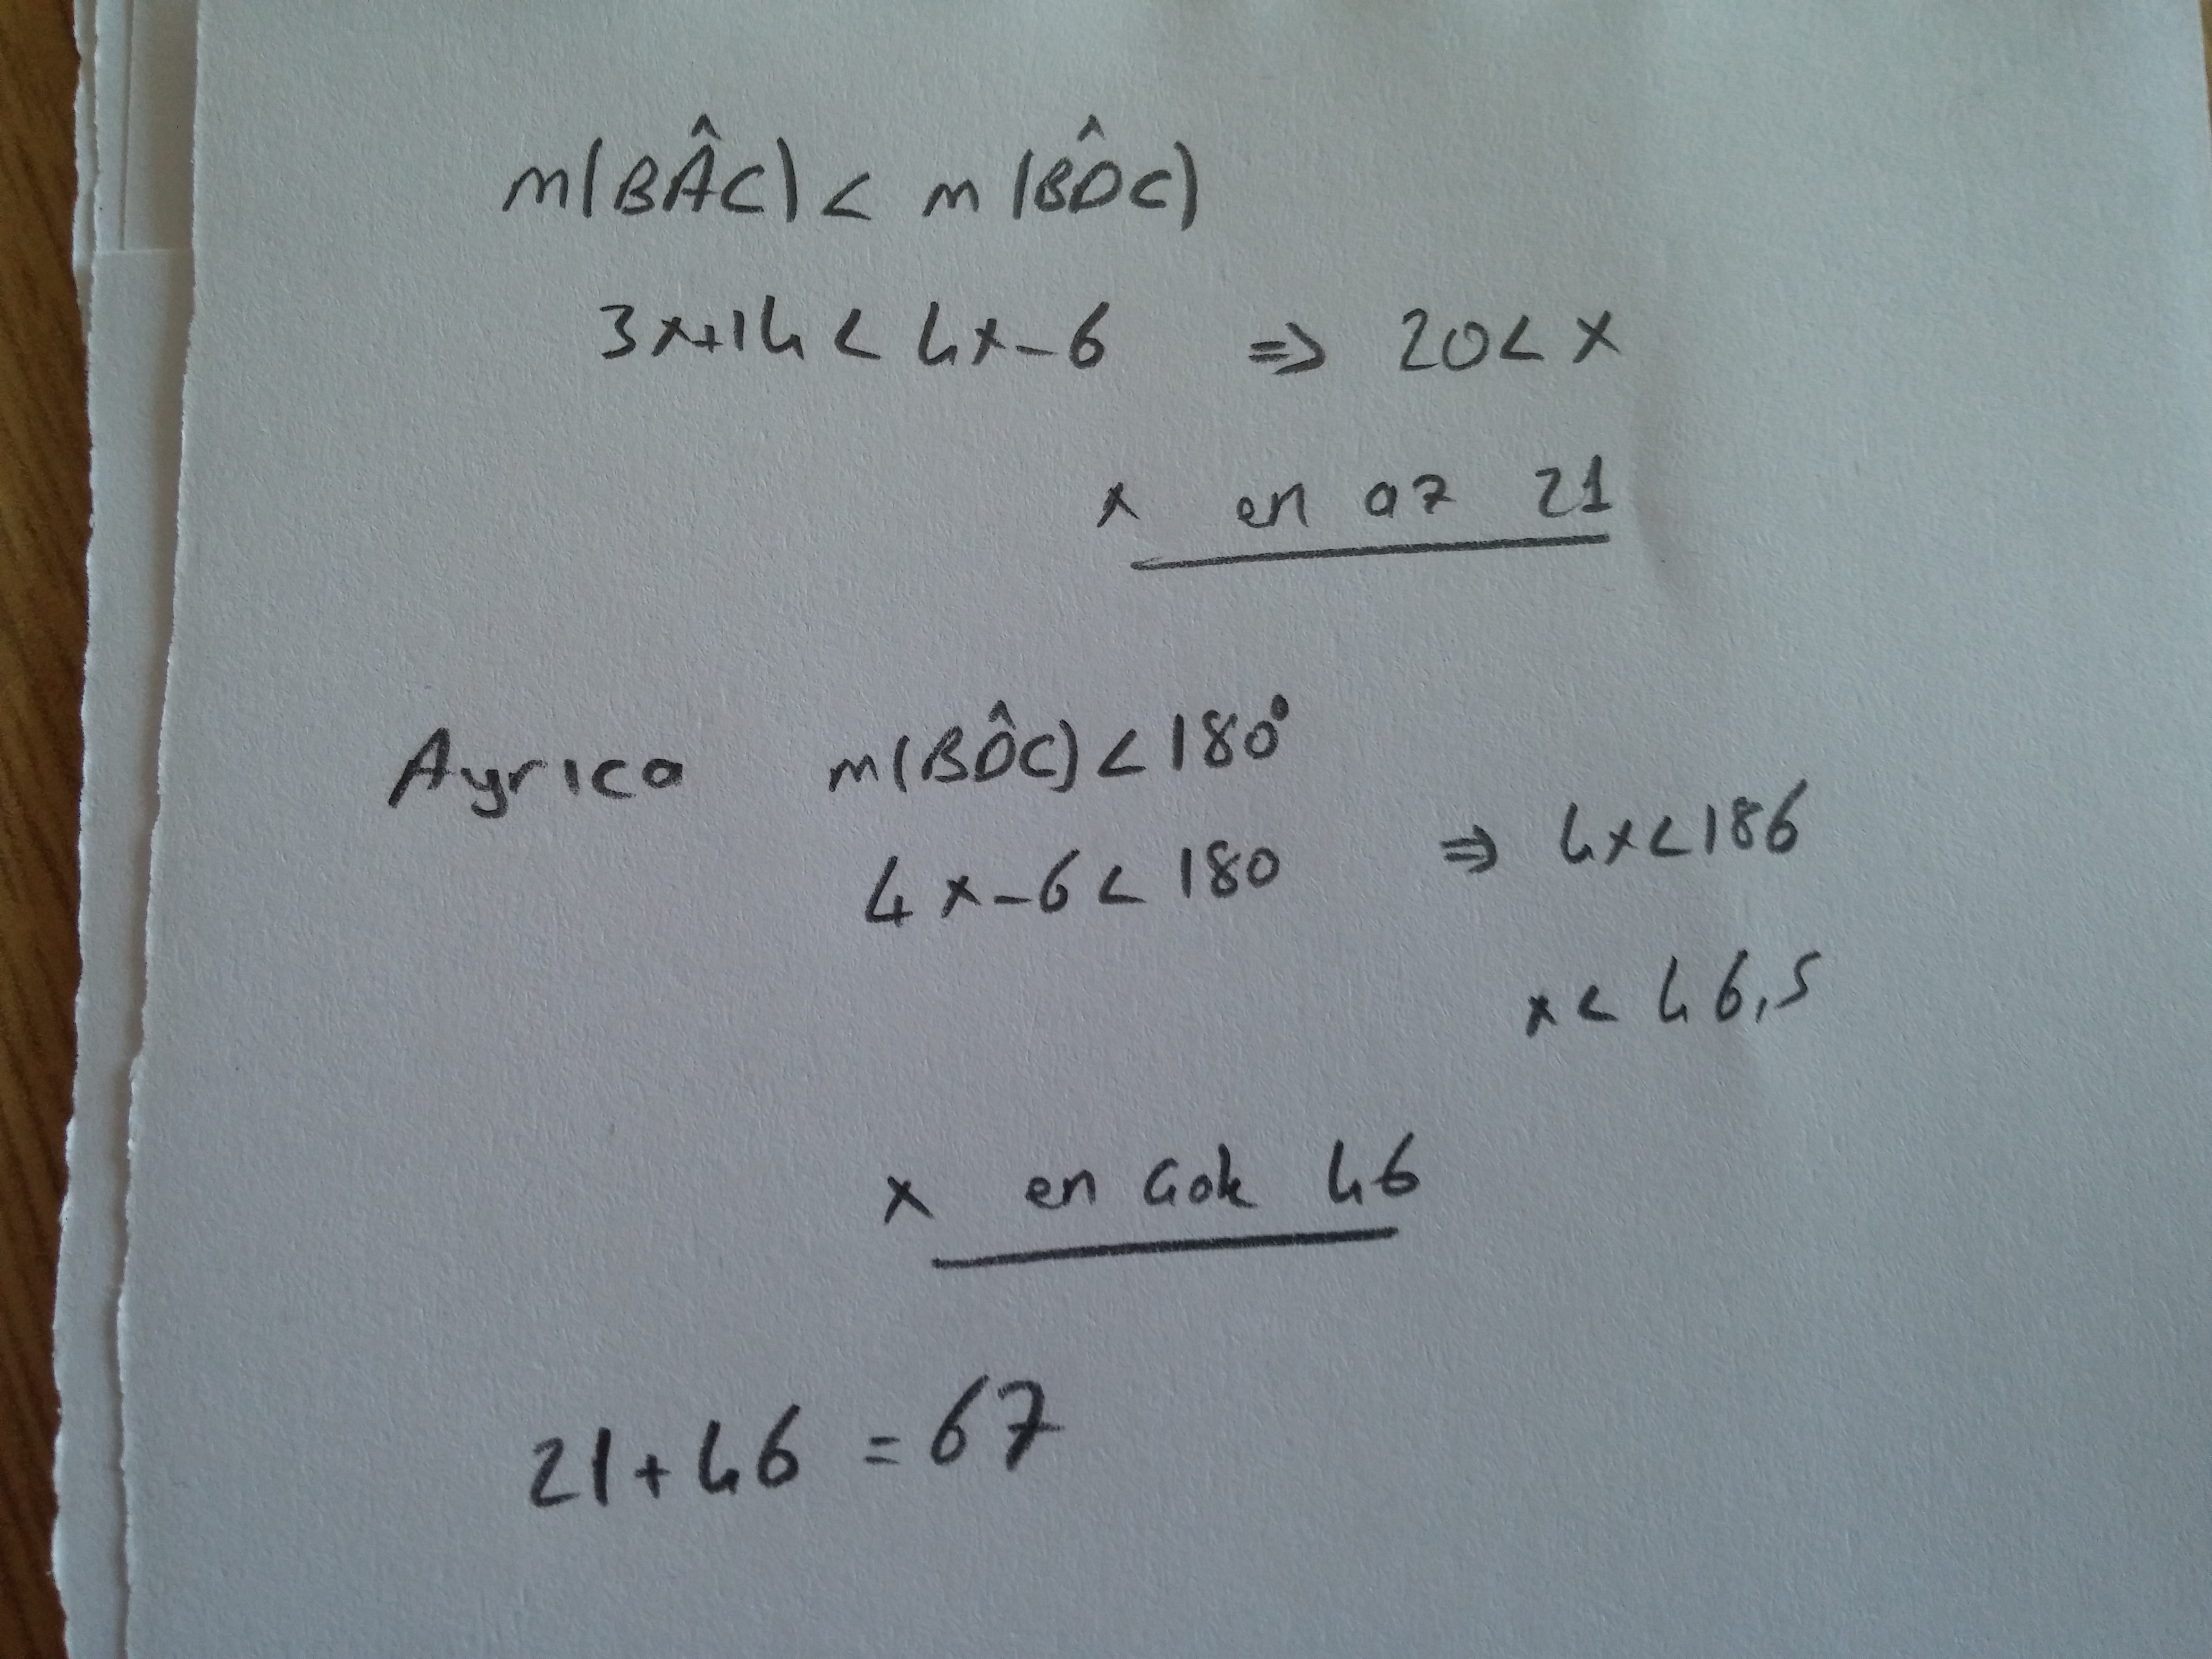 m(BÂC) < m(BD̂C)
3x+14 < 4x-6 ⇒ 20 < x
x en az 21
Ayrıca m(BD̂C) < 180°
4x-6 < 180 ⇒ 4x < 186
x < 46,5
x en çok 46
21+46 = 67